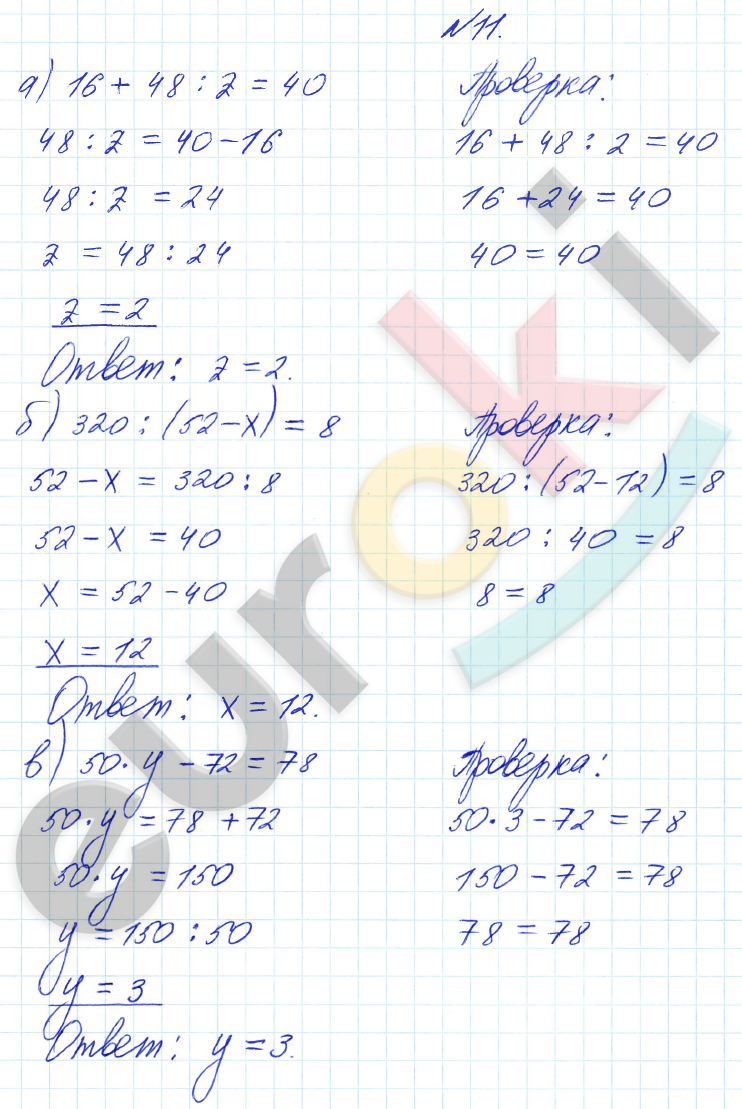 №11.
а) 16 + 48 : z = 40
48 : z = 40 - 16
48 : z = 24
z = 48 : 24
z = 2
Ответ: z = 2.
Проверка:
16 + 48 : 2 = 40
16 + 24 = 40
40 = 40
б) 320 : (52 - x) = 8
52 - x = 320 : 8
52 - x = 40
x = 52 - 40
x = 12
Ответ: x = 12.
Проверка:
320 : (52 - 12) = 8
320 : 40 = 8
8 = 8
в) 50 · y - 72 = 78
50 · y = 78 + 72
50 · y = 150
y = 150 : 50
y = 3
Ответ: y = 3.
Проверка:
50 · 3 - 72 = 78
150 - 72 = 78
78 = 78
euroki